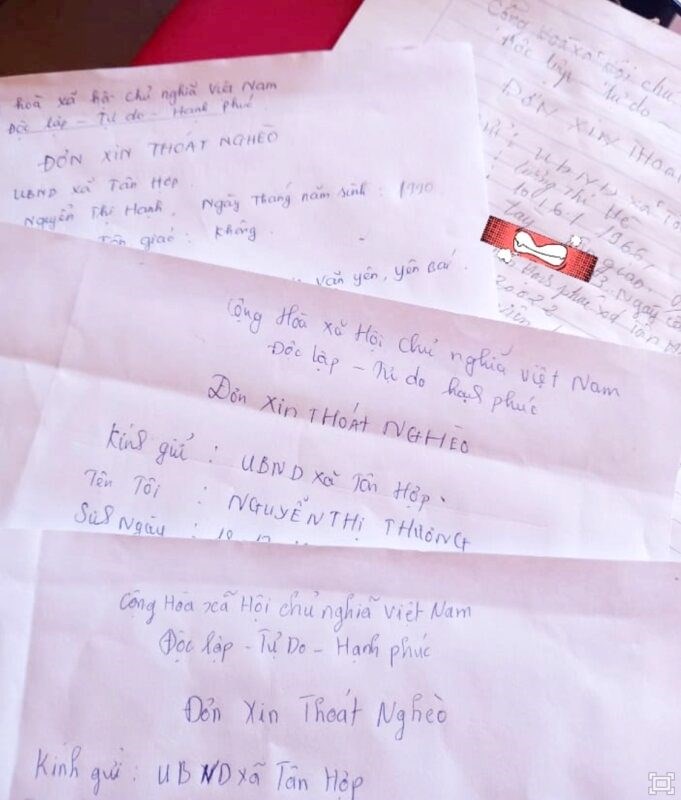 hoà xã hội chủ nghĩa Việt Nam
Độc lập - Tự do - Hạnh phúc
ĐƠN XIN THOÁT NGHÈO
UBND xã Tân Hợp
Nguyễn Thị Hạnh, Ngày tháng năm sinh: 1990
Tôn giáo: không
Văn yên, yên Bái.
Cộng hoà xã hội chủ
Độc lập Tự do
ĐƠN XIN THOÁ
UBND xã
1966
Cộng Hoà xã Hội chủ nghĩa việt Nam
Độc lập - Tự do hạnh phúc
Đơn XIN THOÁT NGHÈO
Kính gửi : UBND xã Tân Hợp.
Tên Tôi : NGUYỄN THỊ THƯƠNG
Sinh Ngày :
Cộng Hòa xã Hội chủ nghĩa việt Nam
Độc lập - Tự Do - Hạnh phúc
Đơn Xin Thoát Nghèo
Kính gửi: UBND xã Tân Hợp